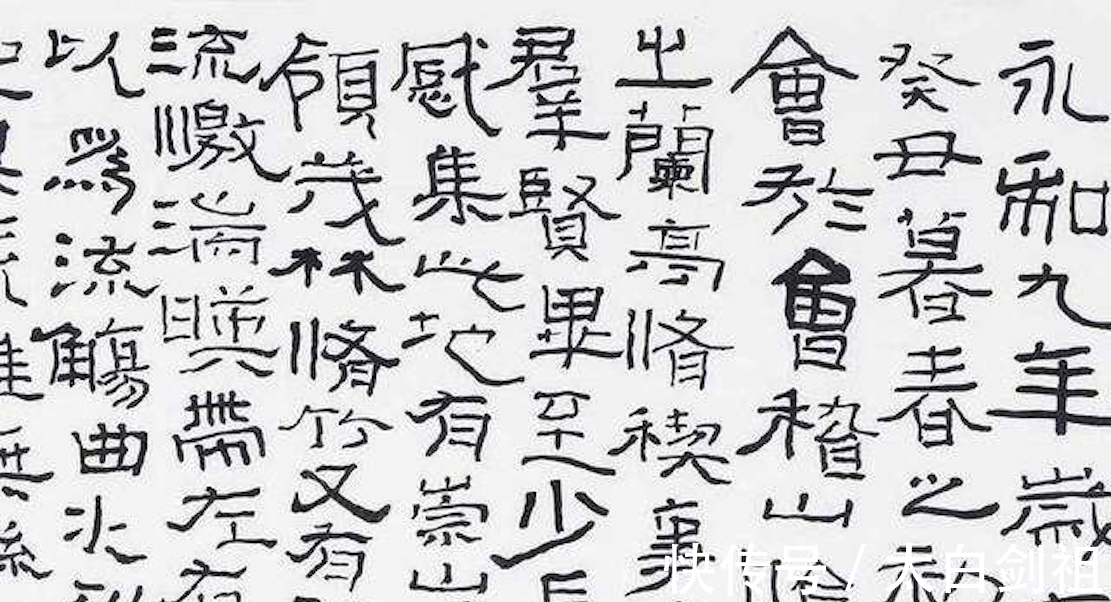 永和九年歲
癸丑暮春之
會於會稽山
之蘭亭脩禊事
羣賢畢至少長
感集此地有崇山
領茂林脩竹又有
流激湍暎帶左右
以爲流觴曲水列
快传号 / 太白剑祖